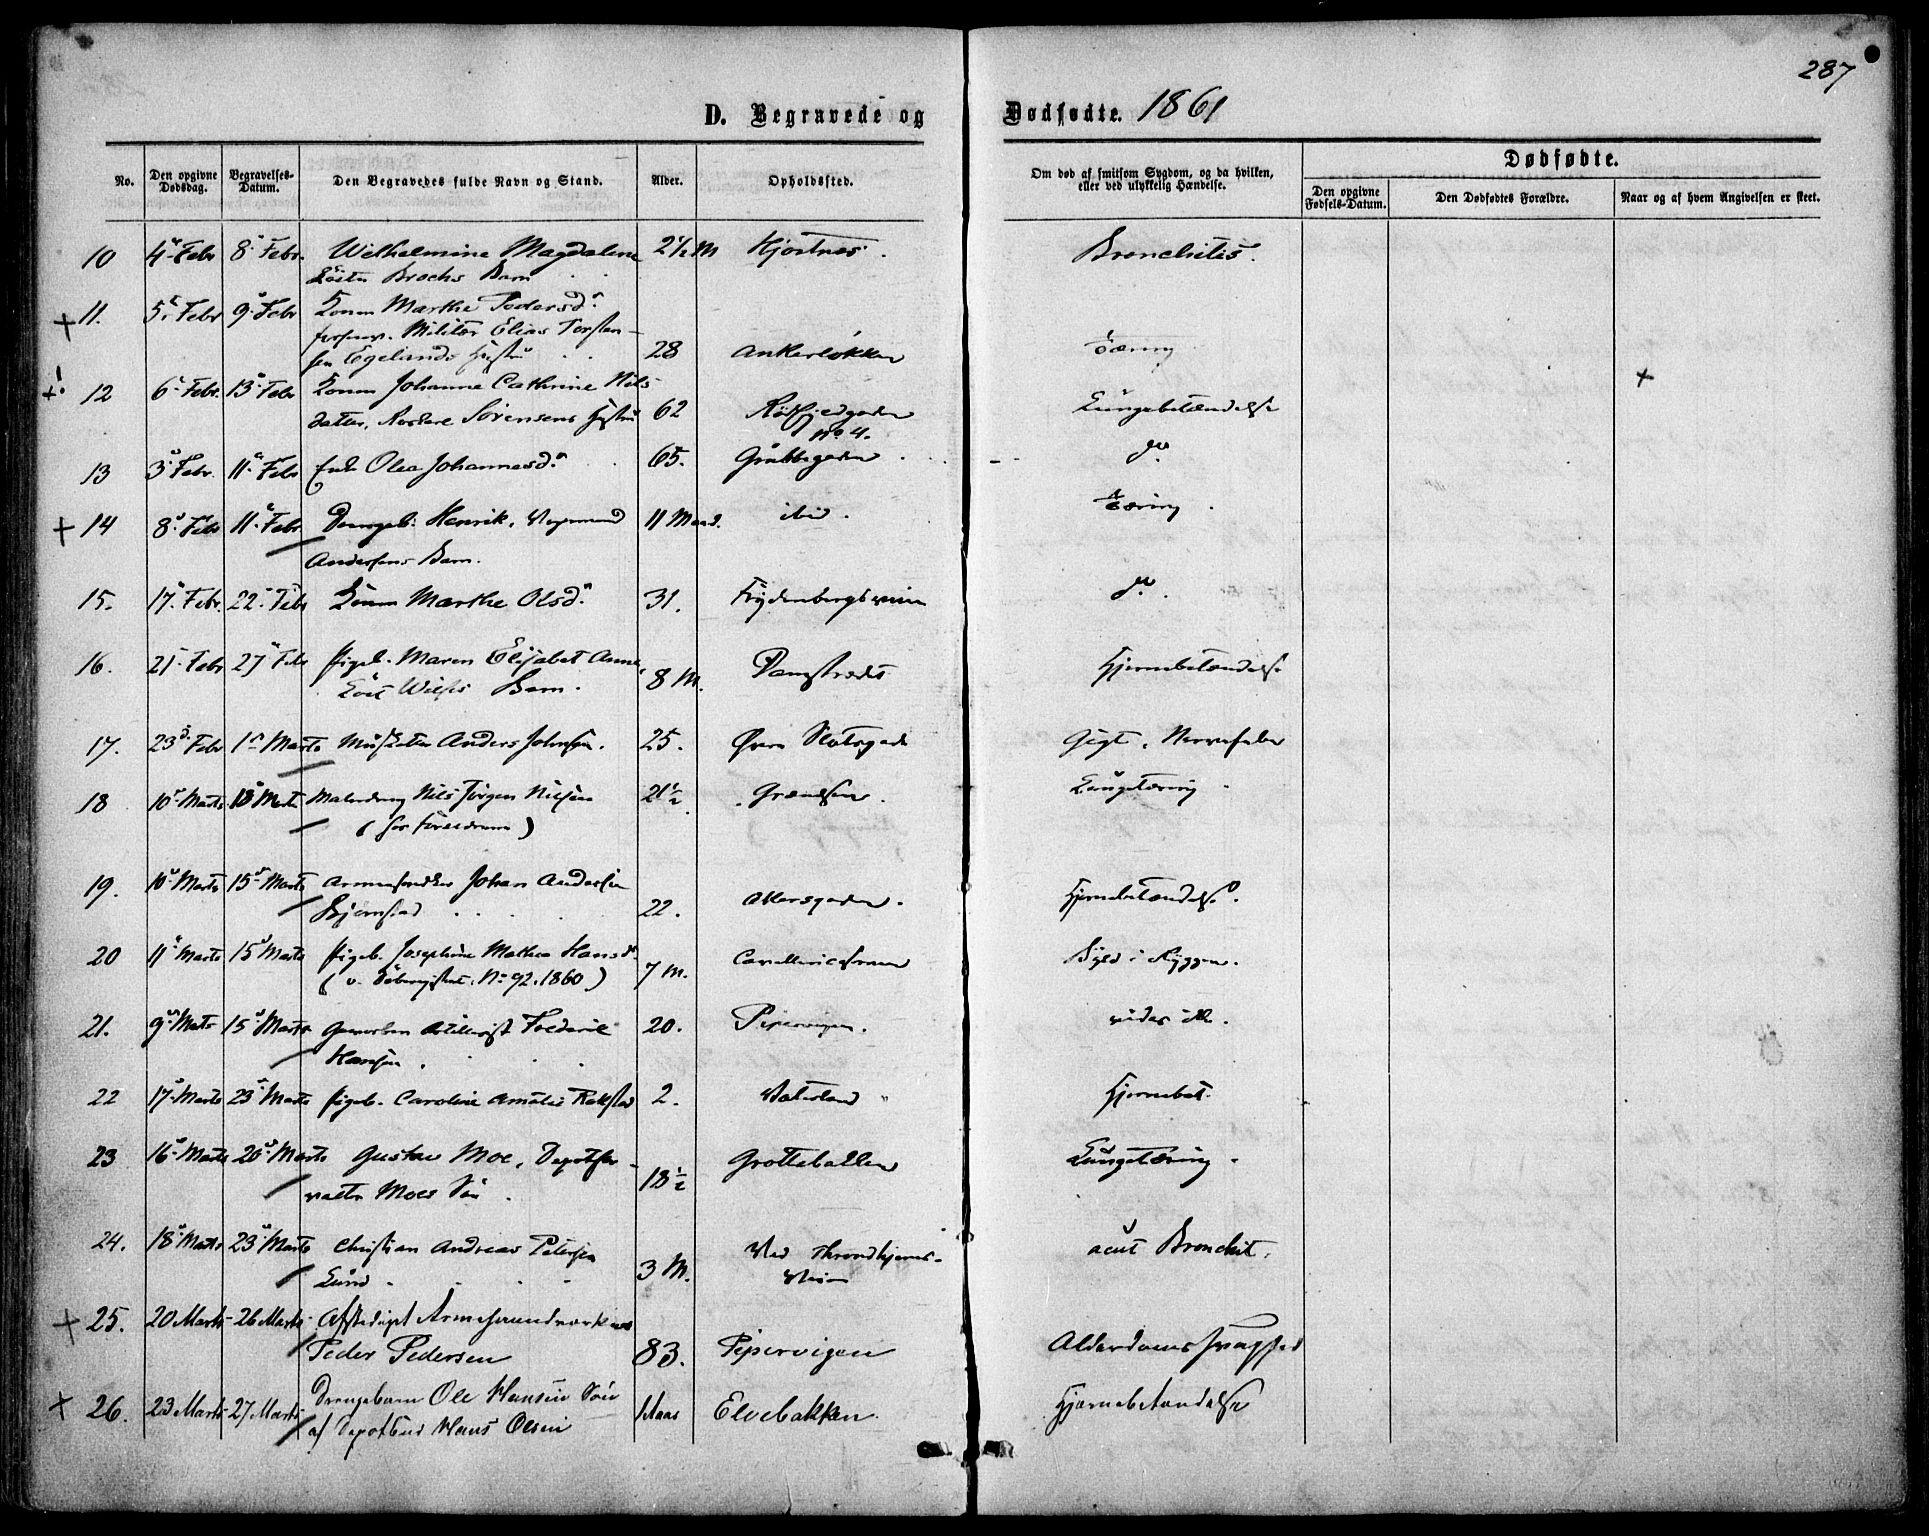 287
D. Begravede og Dødfødte. 1861
No.
Den opgivne Dødsdag.
Begravelses-Datum.
Den Begravedes fulde Navn og Stand.
Alder.
Opholdssted.
Om død af smitsom Sygdom, og da hvilken,
eller ved ulykkelig Hændelse.
Dødfødte.
Den opgivne Fødsels-Datum.
Den Dødfødtes Forældre.
Naar og af hvem Angivelsen er skeet.
10 4. Febr 8. Febr. Wilhelmine Magdalene 2½ M Bronchitis.
Brochs Barn
+ 11. 5. Febr 9. Febr Konen Marthe Pedersd.
Militær Elias Torsten-
sen Egelands Hustru 28 Ankerløkken Tæring
12 6. Febr. 13. Febr Konen Johanne Cathrine Nils- +
datter, Sørensens Hustru 62 no 4. Lungebetændelse
13 3. Febr. 11. Febr Enke Olea Johannesd. 65. Grubbegaden do
+ 14 8. Febr 11. Febr Drengeb. Henrik, Vognmand 11 Maad. ibid. Tæring
Andersens Barn.
15. 17. Febr. 22. Febr Konen Marthe Olsd. 31. Frydenbergsveien do.
16. 21. Febr 27 Febr Pigeb. Maren Elisabet Anne
Barn. 8 M. Damstrædet Hjernebetændelse
17. 23. Febr 1. Marts Musketer Anders Johnsen. 25. Øvre Slotsgade Gigt, Nervefeber
18 10. Marts 18 Marts Malerdreng Nils Jørgen Nilsen 21½ Grændsen. Lungetæring
19. 10. Marts 15. Marts Johan Andersen
Bjørnstad 22. Akersgaden. Hjernebetændelse.
20 11. Marts 15 Marts Pigeb. Josephine Mathea Hansd.
(v. No 92. 1860) 7 M. Byld i Ryggen.
21. 9. Marts 15. Marts Artillerist Frederik 20. Pipervigen.
Hansen.
22 17. Marts 23 Marts Pigeb. Caroline Amalie 2. Vaterland Hjernebet.
23 16. Marts 20. Marts Gustav Moe, Depotfor-
valter Moes Søn. 18½ Grottebakken Lungetæring
24. 18 Marts 23 Marts Christian Andreas Petersen
Lund 3 M. Ved Throndhjems-
Veien acut Bronchit.
+ 25. 20 Marts 26 Marts Afskediget
Peder Pedersen 83. Pipervigen Alderdomssvaghed
+ 26. 23 Marts 27 Marts Drengebarn Ole Hansen Søn
af Depotbud Hans Olsen 1 Aar Elvebakken. Hjernebetændelse